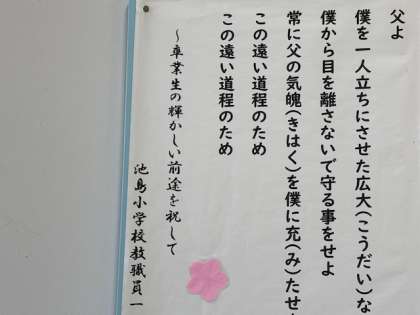 父よ
僕を一人立ちにさせた広大(こうだい)な
僕から目を離さないで守る事をせよ
常に父の気魄(きはく)を僕に充(み)たせ
この遠い道程のため
この遠い道程のため
～卒業生の輝かしい前途を祝して
池島小学校教職員一